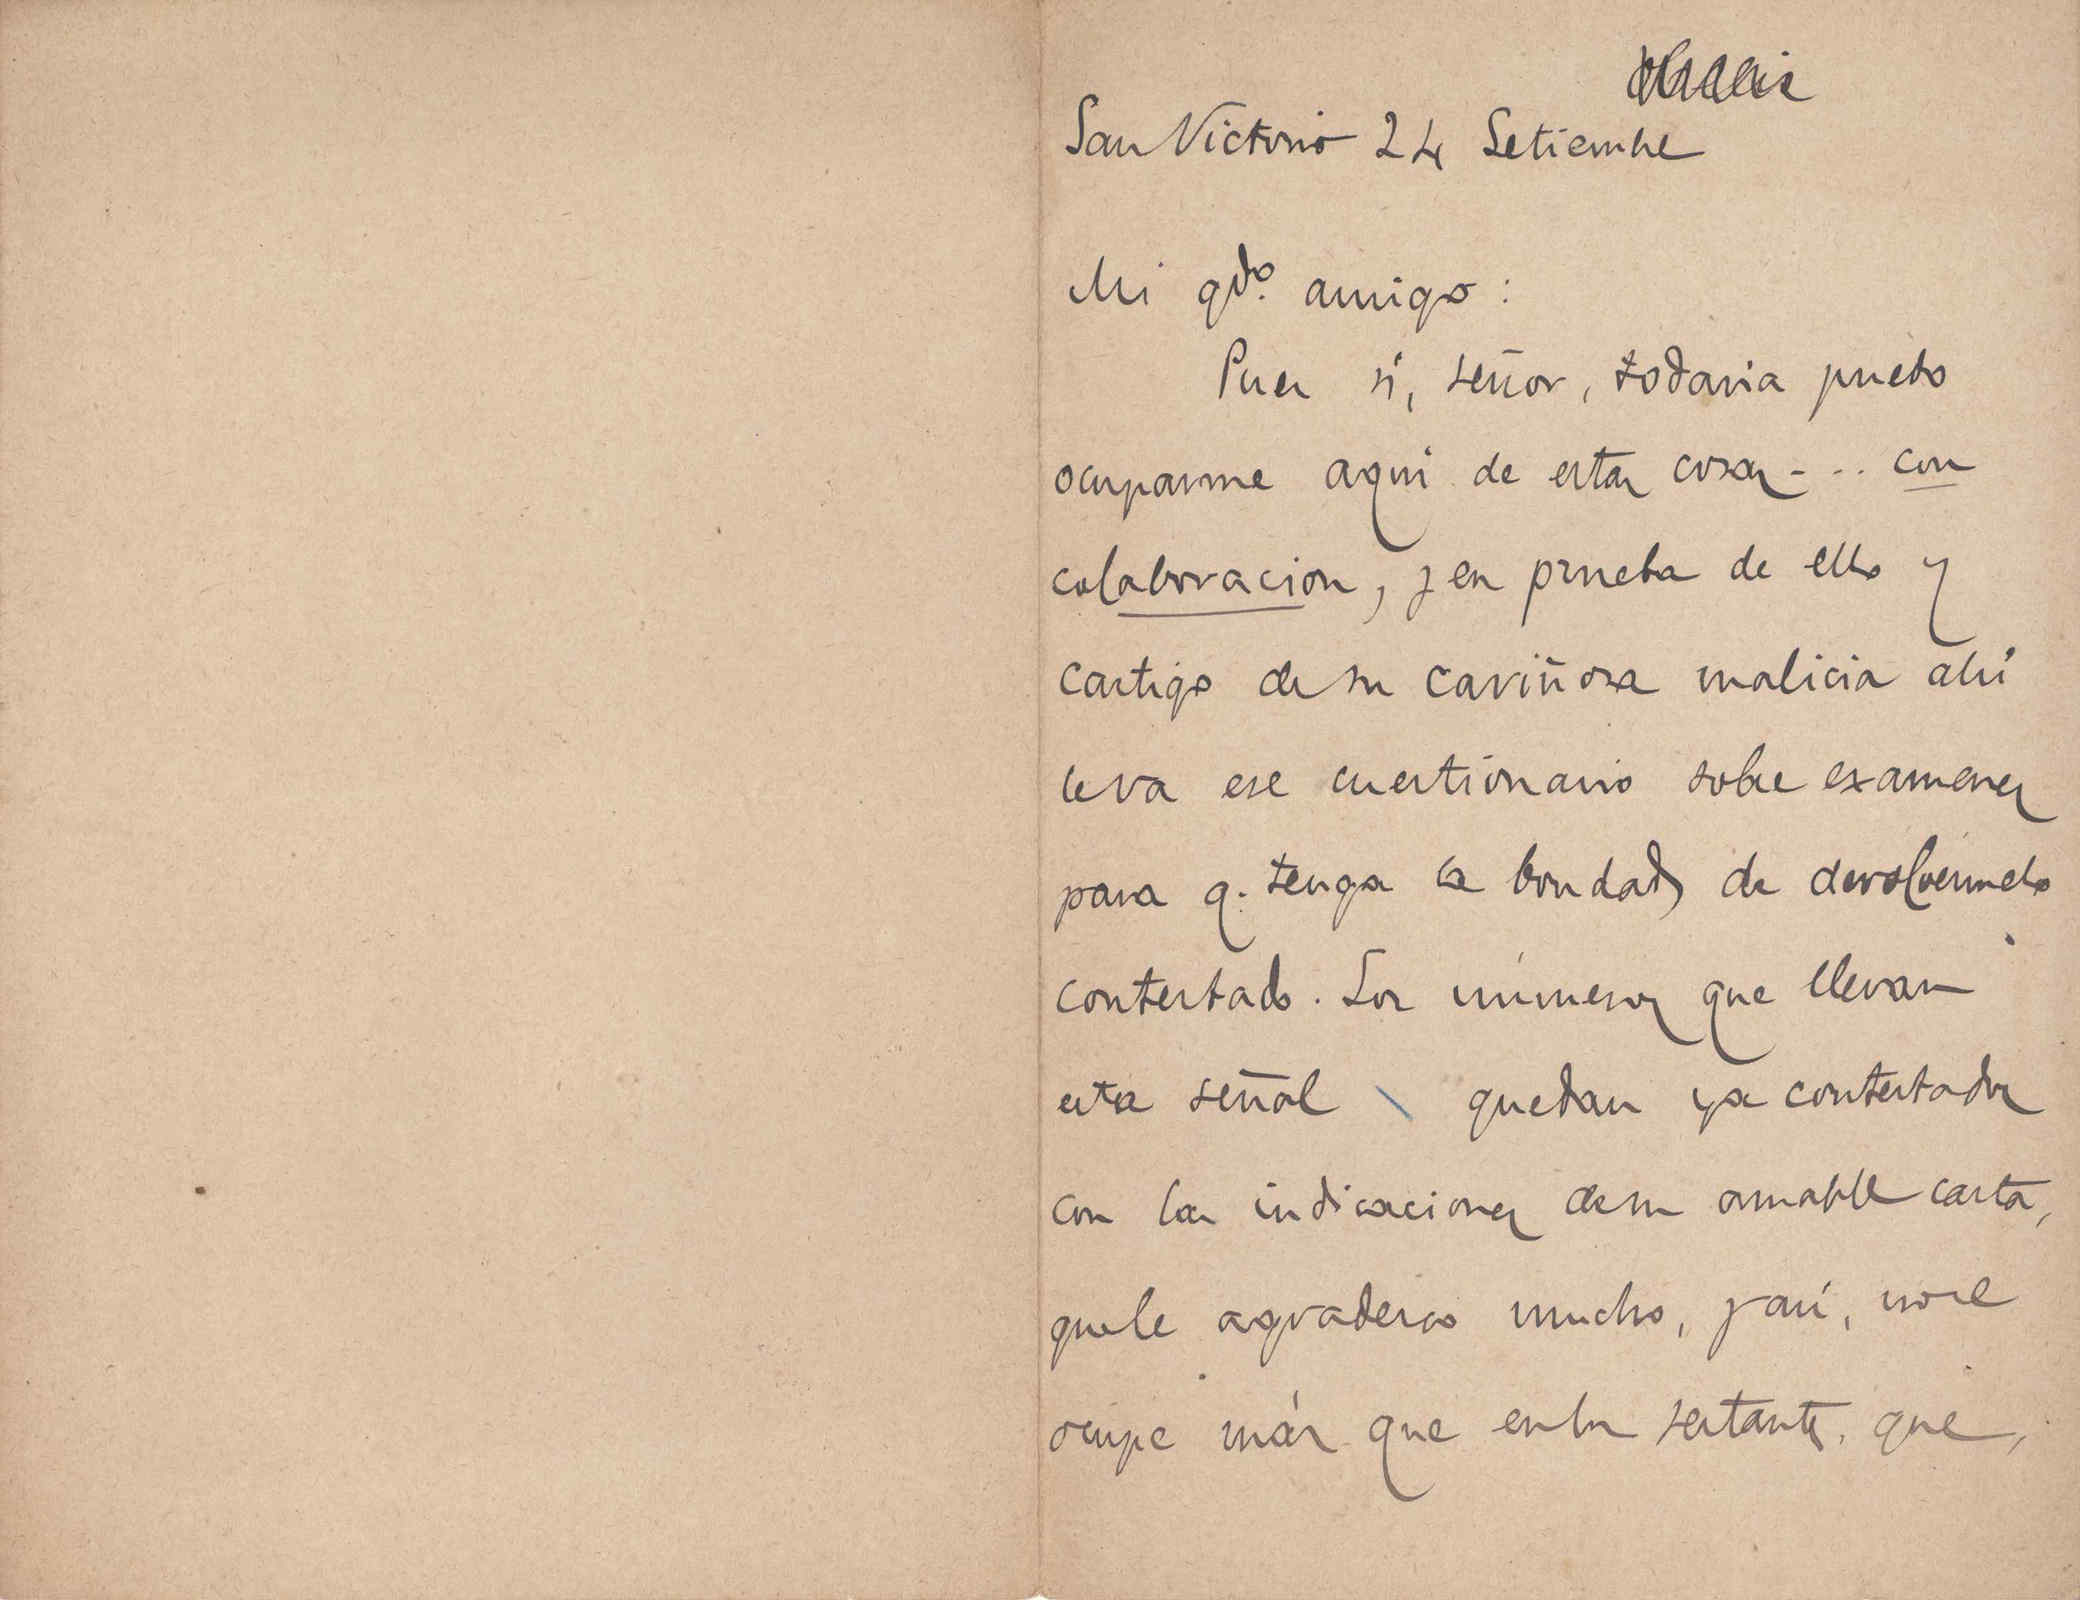 San Victorio 24 Setiembre
Mi qdo. amigo:
Pues sí, señor, todavia puedo
ocuparme aqui de estas cosas - .. con
colaboracion, y en prueba de ello y
castigo de su cariñosa malicia ahí
le va ese cuestionario sobre examenes
para q. tenga la bondad de devolvérmelo
contestado. Los números que llevan
esta señal \ quedan ya contestados
con las indicaciones de su amable carta,
que le agradezco mucho, y así, no se
ocupe más que en los restantes. que,